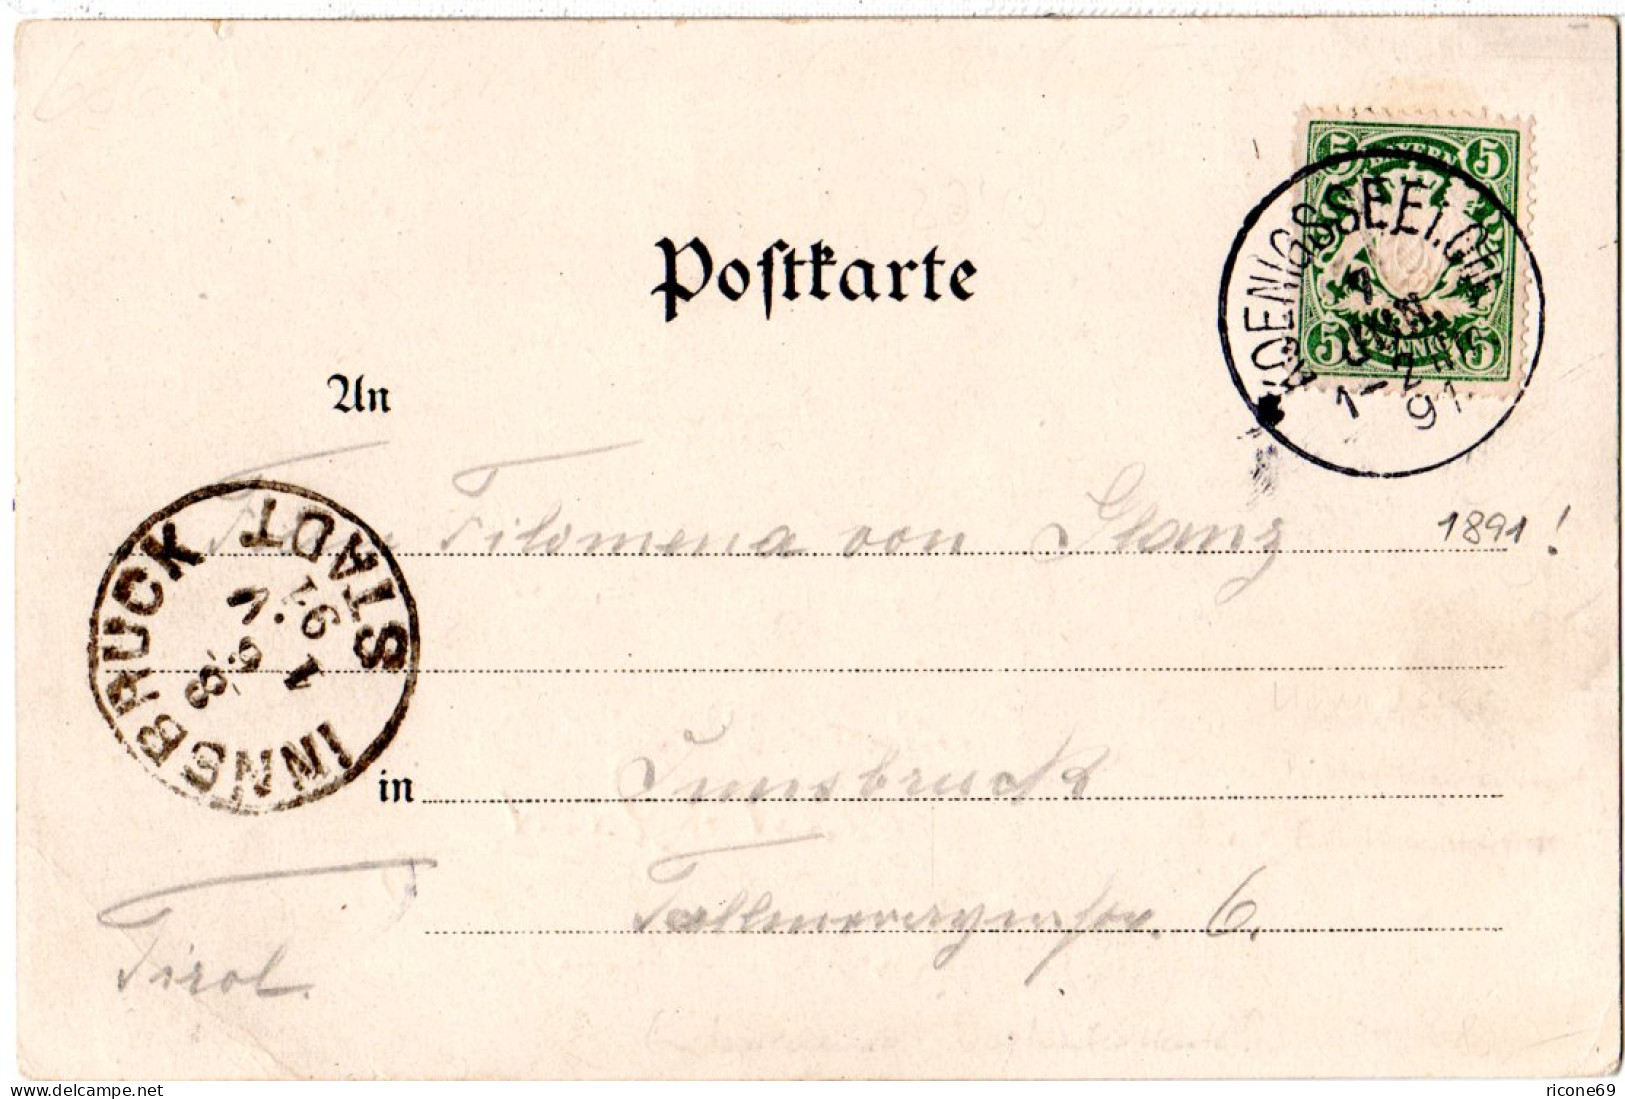 5 BAYERN 5
5 PFENNIG 5
KOENIGSSEE
JUN.
1-2 NM
91
Postkarte
An
Filomena von Glanz
1891!
INNSBRUCK STADT
91
in Innsbruck
Fallmerayerstr. 6.
Tirol.
ricone69